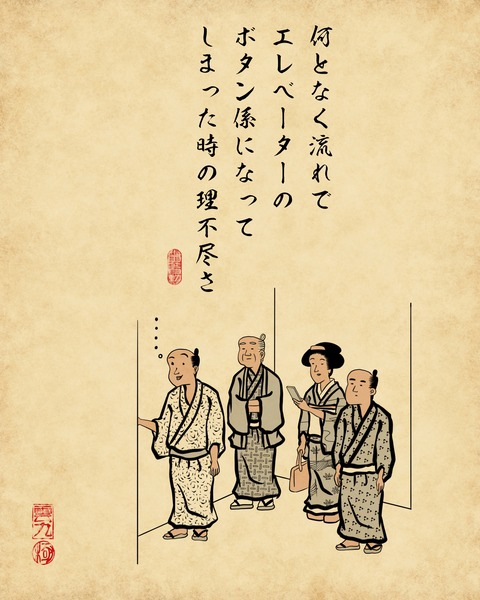 何となく流れで
エレベーターの
ボタン係になって
しまった時の理不尽さ